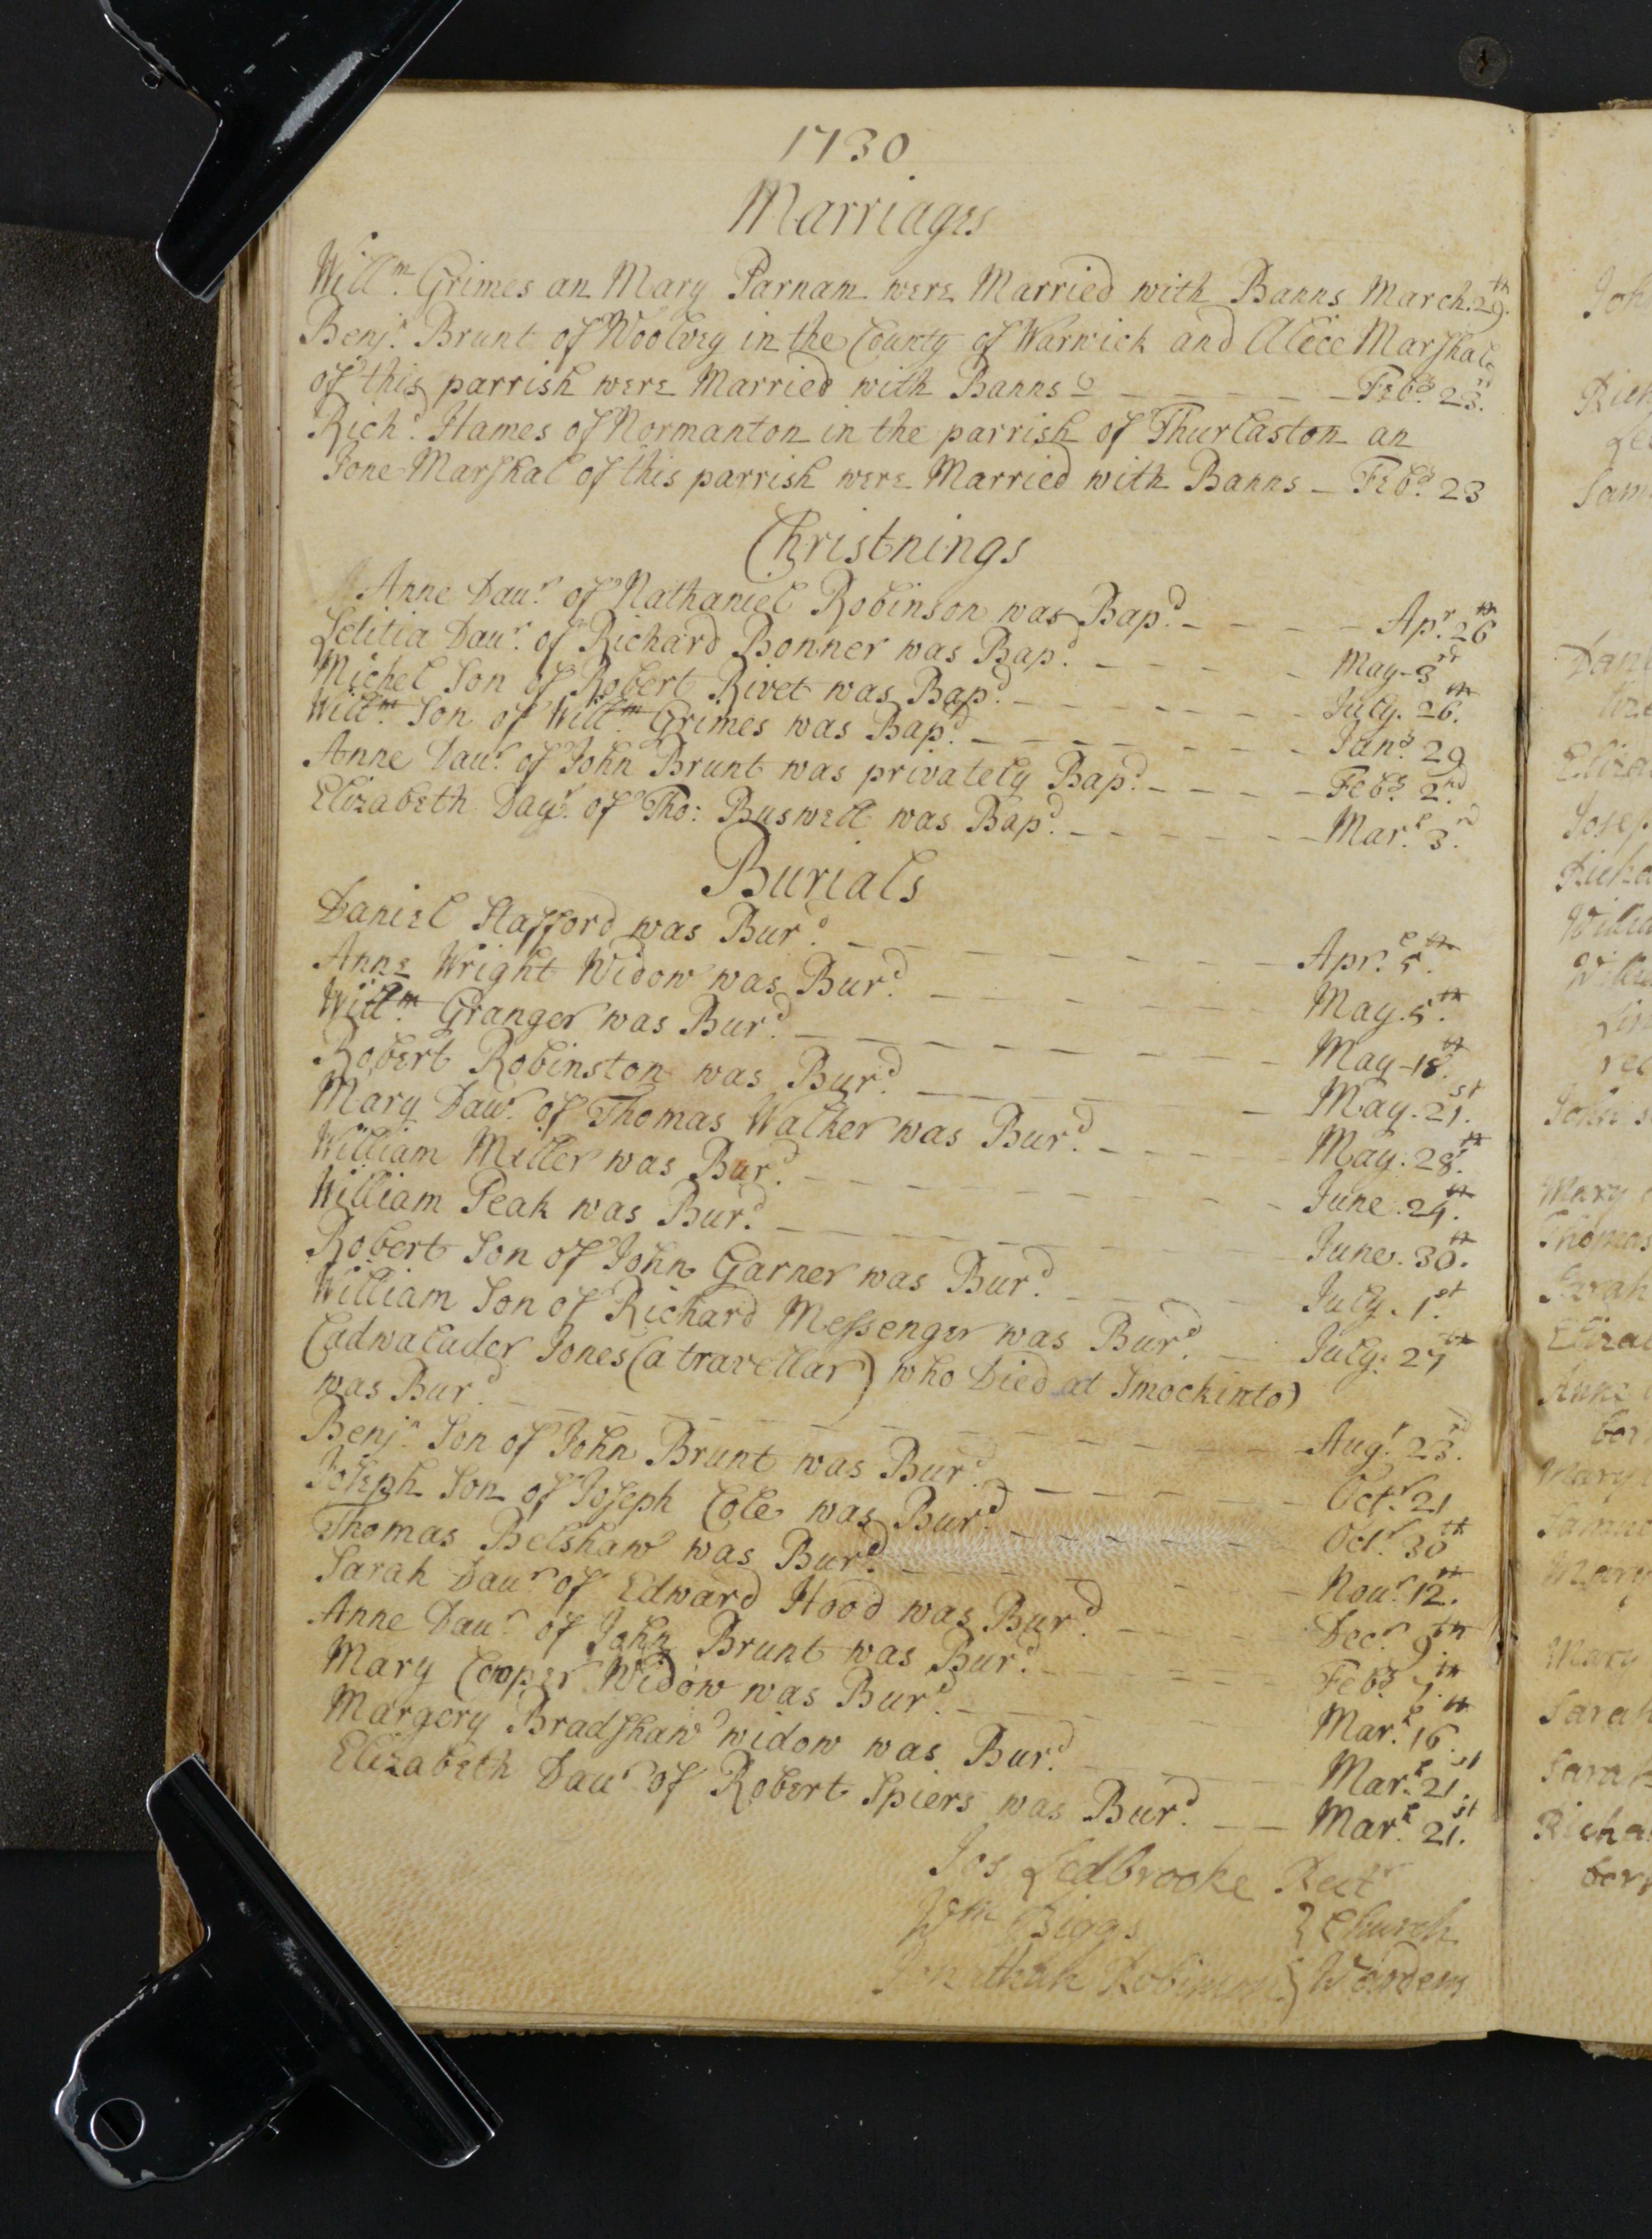 1730
Marriages
Willm. Grimes an Mary Parnam were Married with Banns March. 29th.
Benjn. Brunt of Woolvey in the County of Warwick and Alece Marshal
of this parrish were Married with Banns – – – – – – Feby. 23rd.
Richd. Hames of Normanton in the parrish of Thurlaston an
Jone Marshal of this parrish were Married with Banns – Feby. 23
Christnings
Anne Daur. of Nathaniel Robinson was Bapd. – – – – – Apr. 26th
Letitia Daur. of Richard Bonner was Bapd. – – – – – May – 3rd
Michel Son of Robert Rivet was Bapd. – – – – – – July. 26th.
Willm. Son of Willm. Grimes was Bapd. – – – – – – Jany. 29
Anne Daur. of John Brunt was privately Bapd. – – – – Feby. 2nd.
Elizabeth Daur. of Tho: Buswell was Bapd. – – – – – Mar. 3rd.
Burials
Daniel Stafford was Burd. – – – – – – – – Apr. 5th.
Anne Wright Widow was Burd. – – – – – – – May. 5th.
Willm. Granger was Burd. – – – – – – – – May – 18th.
Robert Robinston was Burd. – – – – – – May. 21st.
Mary Daur. of Thomas Walker was Burd. – – – – – May. 28th.
William Miller was Burd. – – – – – – – – – June. 24th.
William Peak was Burd. – – – – – – – – June. 30th.
Robert Son of John Garner was Burd. – – – – July. 1st.
William Son of Richard Messenger was Burd. – – July. 27th
Cadwalader Jones (a travellar) who Died at Smockinto)
was Burd. – – – – – – – – – – – Augt. 23rd.
Benjn. Son of John Brunt was Burd. – – – – – – Octr. 21
Joseph Son of Joseph Cole was Burd. – – – – – – Octr. 30th
Thomas Belshaw was Burd. – – – – – – – Novr. 12th.
Sarah Daur. of Edward Hood was Burd. – – – – Decr. 9th.
Anne Daur. of John Brunt was Burd. – – – – Feby. 7th.
Mary Cooper Widow was Burd. – – – – – Mar. 16th
Margery Bradshaw widow was Burd. – – – – Mar. 21st.
Elizabeth Daur. of Robert Spiers was Burd. – – Mar. 21st.
Jos Ledbrooke Rectr
Wm Biggs } Church
Jonathan Robinson } Wardens